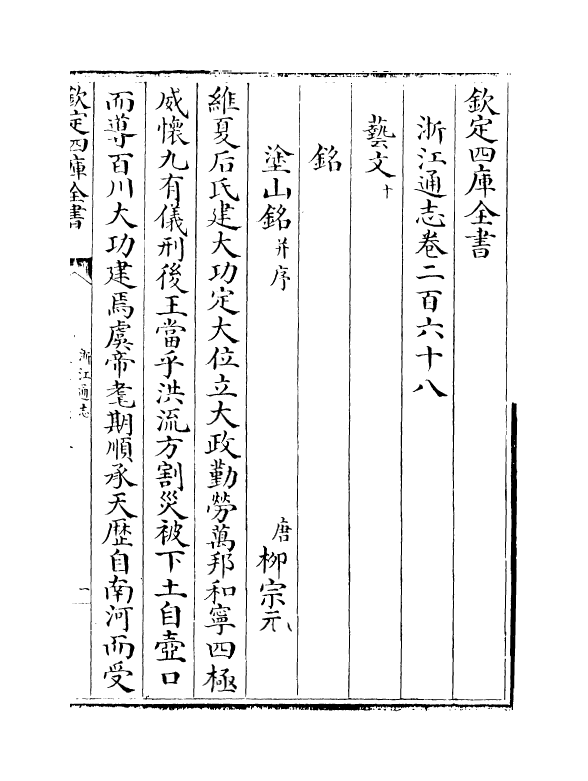 欽定四庫全書
浙江通志卷二百六十八
藝文十
銘
塗山銘并序 唐柳宗元
維夏后氏建大功定大位立大政勤勞萬邦和寧四極
威懷九有儀刑後王當乎洪流方割災被下土自壺口
而導百川大功建焉虞帝耄期順承天歷自南河而受
欽定四庫全書 浙江通志 一